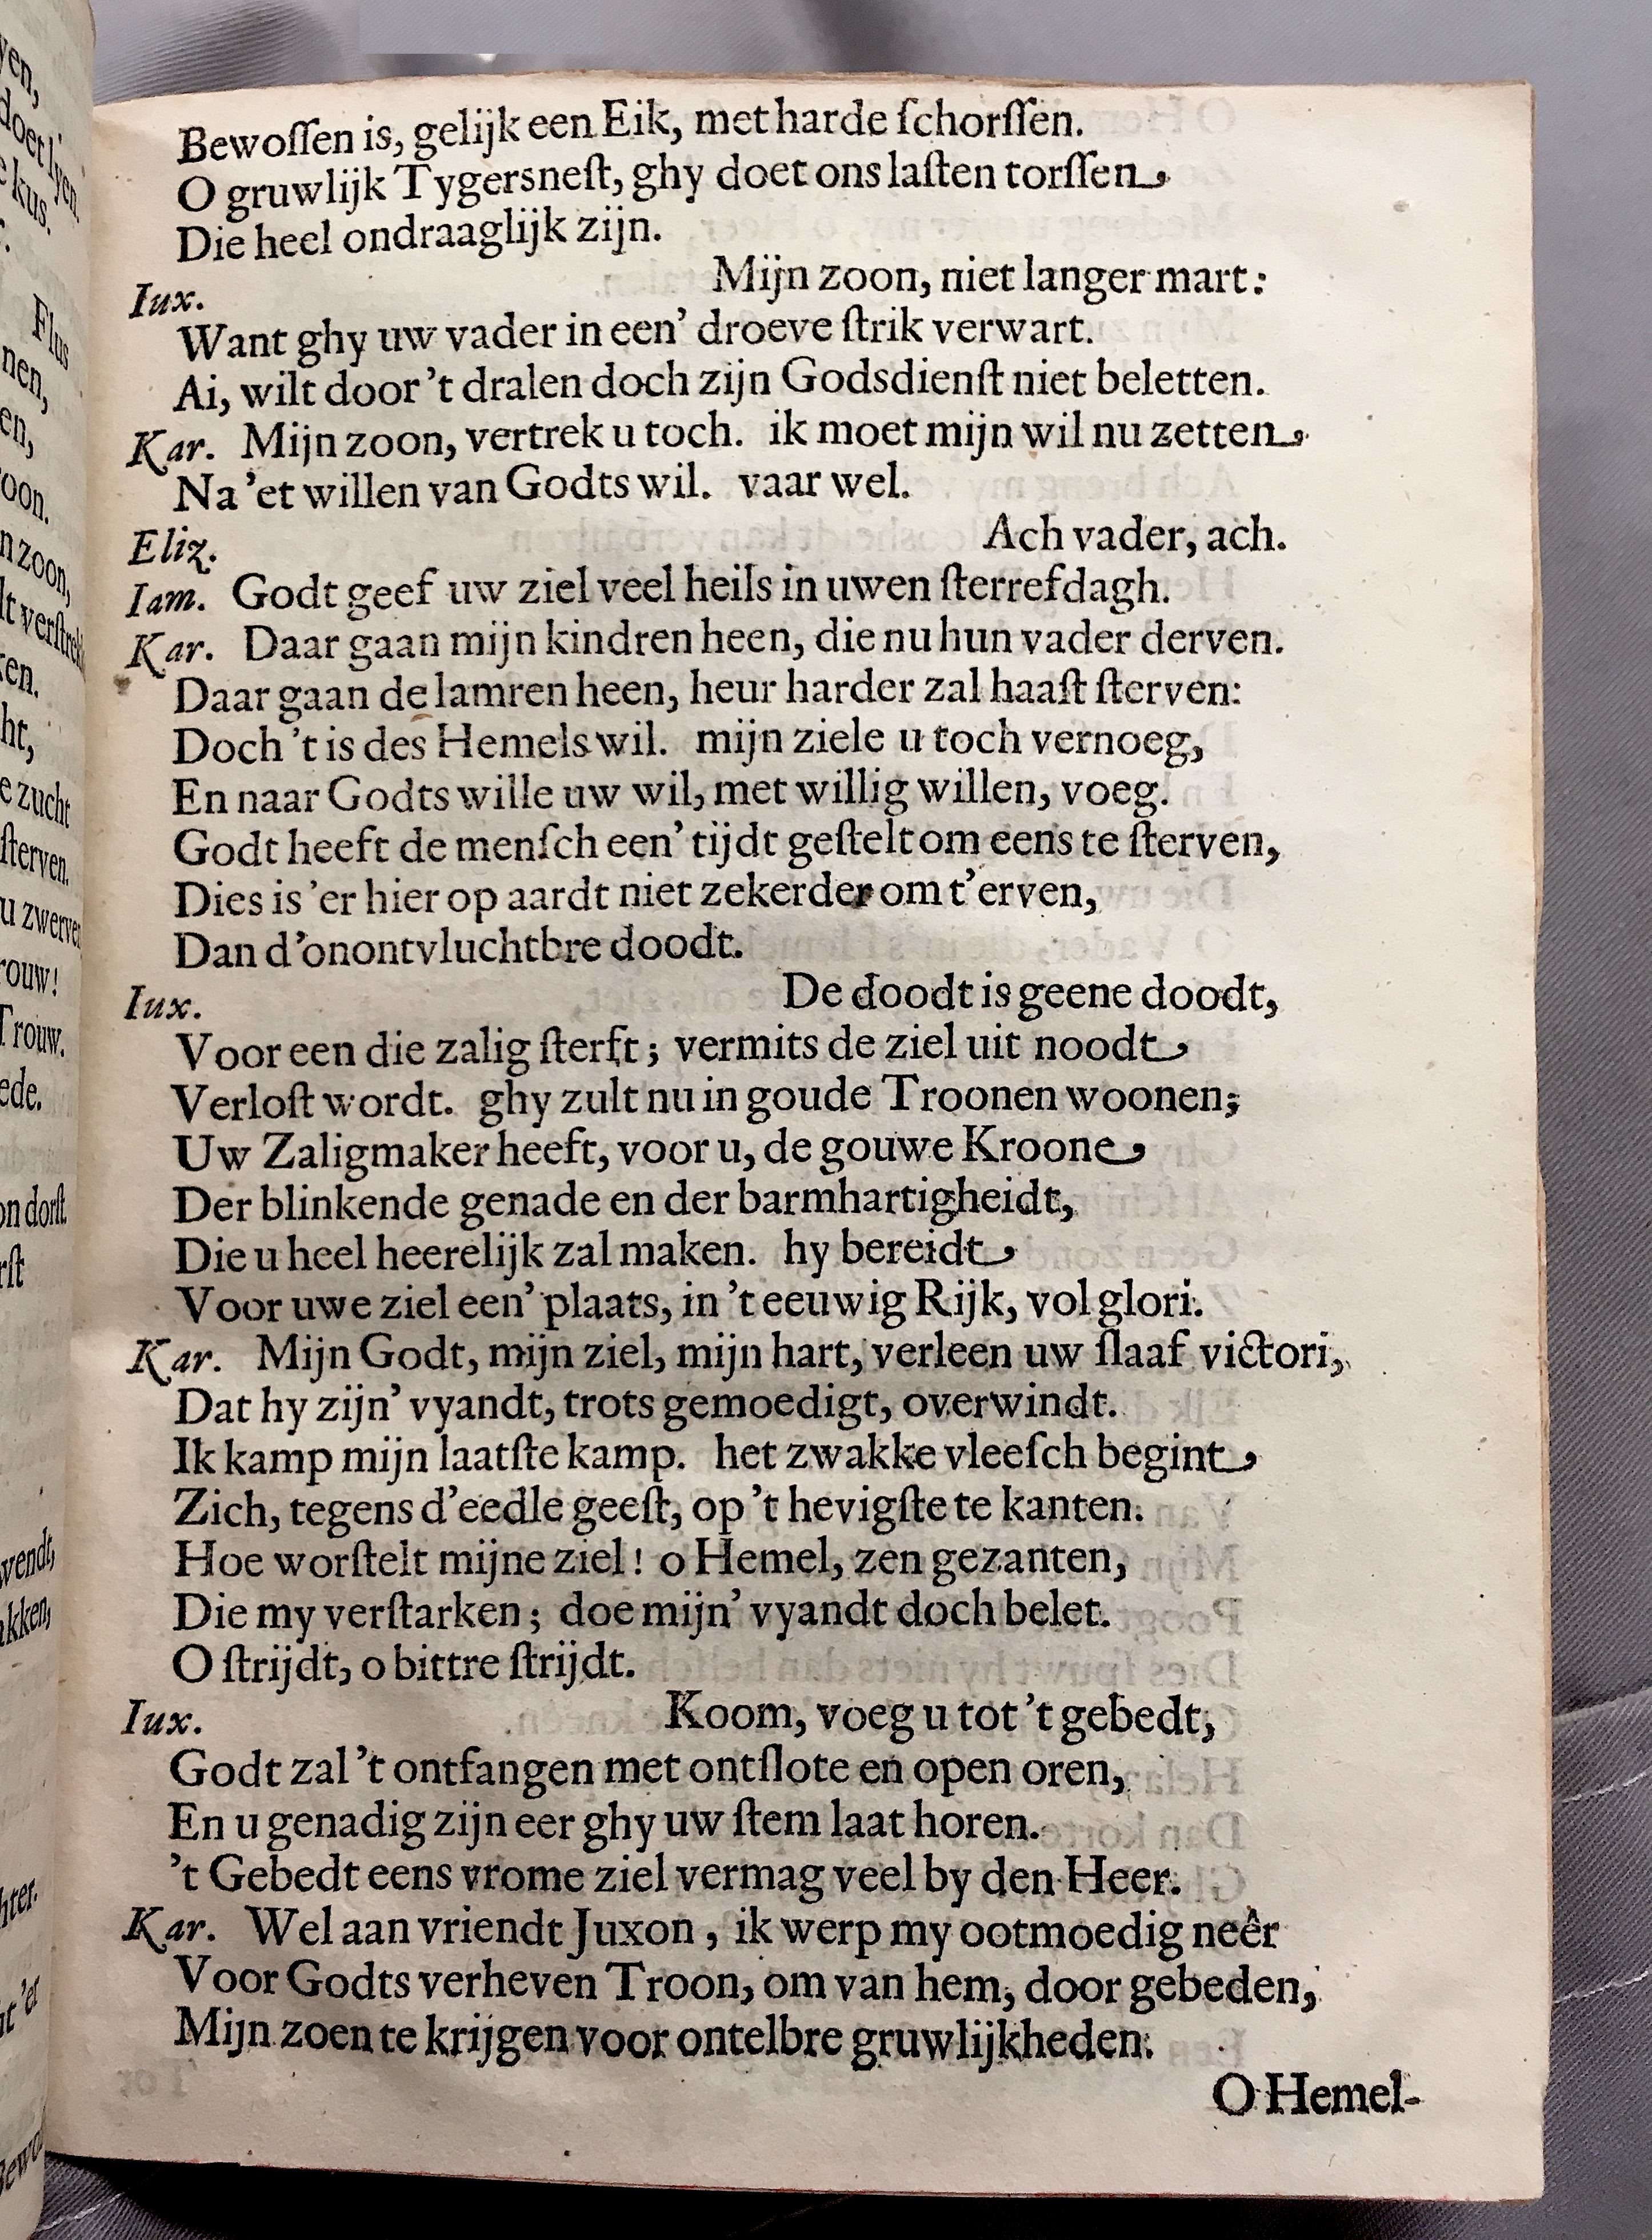 Bewoſſen is, gelijk een Eik, met harde ſchorſſen.
O gruwlijk Tygersneſt, ghy doet ons laſten torſſen
Die heel ondraaglijk zijn.
Iux. Mijn zoon, niet langer mart:
Want ghy uw vader in een' droeve ſtrik verwart.
Ai, wilt door 't dralen doch zijn Godsdienſt niet beletten.
Kar. Mijn zoon, vertrek u toch. ik moet mijn wil nu zetten
Na 'et willen van Godts wil. vaar wel.
Eliz. Ach vader, ach.
Iam. Godt geef uw ziel veel heils in uwen ſterrefdagh.
Kar. Daar gaan mijn kindren heen, die nu hun vader derven.
Daar gaan de lamren heen, heur harder zal haaſt ſterven:
Doch 't is des Hemels wil. mijn ziele u toch vernoeg,
En naar Godts wille uw wil, met willig willen, voeg.
Godt heeft de menſch een' tijdt geſtelt om eens te ſterven,
Dies is 'er hier op aardt niet zekerder om t'erven,
Dan d'onontvluchtbre doodt.
Iux. De doodt is geene doodt,
Voor een die zalig ſterft; vermits de ziel uit noodt
Verloſt wordt. ghy zult nu in goude Troonen woonen;
Uw Zaligmaker heeft, voor u, de gouwe Kroone
Der blinkende genade en der barmhartigheidt,
Die u heel heerelijk zal maken. hy bereidt
Voor uwe ziel een' plaats, in 't eeuwig Rijk, vol glori.
Kar. Mijn Godt, mijn ziel, mijn hart, verleen uw ſlaaf victori,
Dat hy zijn' vyandt, trots gemoedigt, overwindt.
Ik kamp mijn laatſte kamp. het zwakke vleeſch begint
Zich, tegens d'eedle geeſt, op 't hevigſte te kanten.
Hoe worſtelt mijne ziel! o Hemel, zen gezanten,
Die my verſtarken; doe mijn' vyandt doch belet.
O ſtrijdt, o bittre ſtrijdt.
Iux. Koom, voeg u tot 't gebedt,
Godt zal 't ontfangen met ontſlote en open oren,
En u genadig zijn eer ghy uw ſtem laat horen.
't Gebedt eens vrome ziel vermag veel by den Heer.
Kar. Wel aan vriendt Juxon, ik werp my ootmoedig neêr
Voor Godts verheven Troon, om van hem, door gebeden,
Mijn zoen te krijgen voor ontelbre gruwlijkheden.
O Hemel-